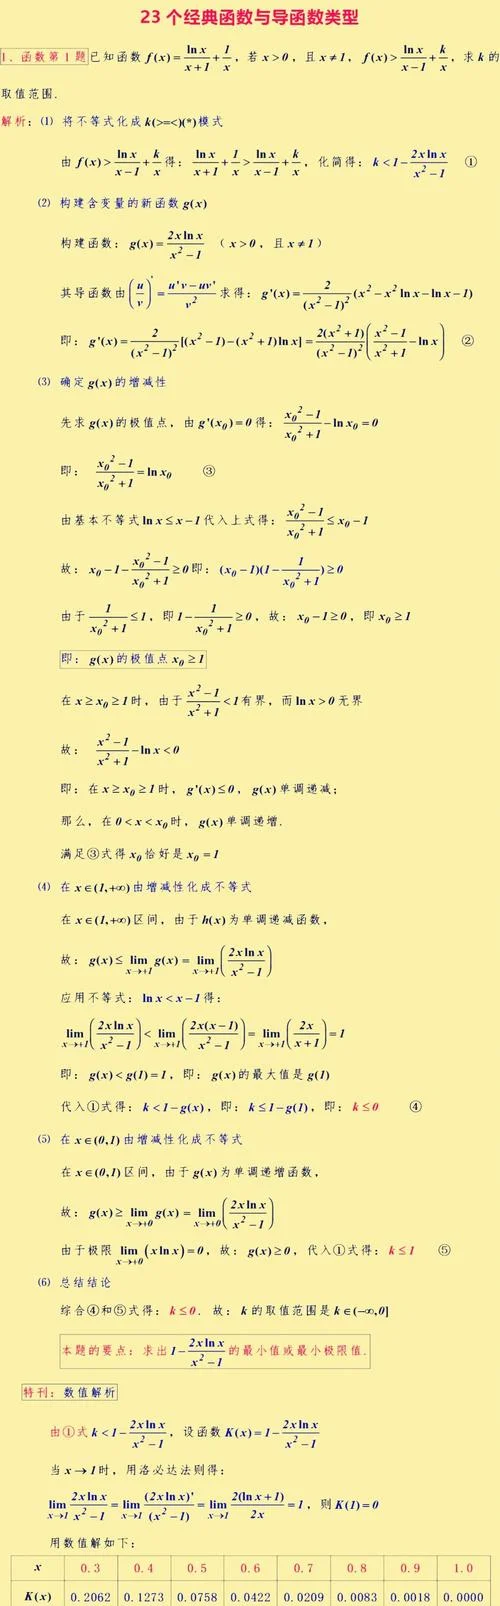 23个经典函数与导函数类型
1、函数第1题 已知函数 f(x)=\frac{ln x}{x+1}+\frac{1}{x}，若 x>0，且 x≠1，f(x)>\frac{ln x}{x-1}+\frac{k}{x}，求 k 的
取值范围.
解析：⑴ 将不等式化成 k(>=<)(*)模式
由 f(x)>\frac{ln x}{x-1}+\frac{k}{x} 得：\frac{ln x}{x+1}+\frac{1}{x}>\frac{ln x}{x-1}+\frac{k}{x}，化简得：k<1-\frac{2x ln x}{x^2-1} ①
⑵ 构建含变量的新函数 g(x)
构建函数：g(x)=\frac{2x ln x}{x^2-1}（x>0，且 x≠1）
其导函数由 (\frac{u}{v})'=\frac{u'v-uv'}{v^2} 求得：g'(x)=\frac{2}{(x^2-1)^2}(x^2-x^2 ln x-ln x-1)
即：g'(x)=\frac{2}{(x^2-1)^2}[(x^2-1)-(x^2+1)ln x]=\frac{2(x^2+1)}{(x^2-1)^2}(\frac{x^2-1}{x^2+1}-ln x) ②
⑶ 确定 g(x) 的增减性
先求 g(x) 的极值点，由 g'(x_0)=0 得：\frac{x_0^2-1}{x_0^2+1}-ln x_0=0
即：\frac{x_0^2-1}{x_0^2+1}=ln x_0 ③
由基本不等式 ln x≤x-1 代入上式得：\frac{x_0^2-1}{x_0^2+1}≤x_0-1
故：x_0-1-\frac{x_0^2-1}{x_0^2+1}≥0 即：(x_0-1)(1-\frac{1}{x_0^2+1})≥0
由于 \frac{1}{x_0^2+1}≤1，即 1-\frac{1}{x_0^2+1}≥0，故：x_0-1≥0，即 x_0≥1
即：g(x) 的极值点 x_0≥1
在 x≥x_0≥1 时，由于 \frac{x^2-1}{x^2+1}<1 有界，而 ln x>0 无界
故：\frac{x^2-1}{x^2+1}-ln x<0
即：在 x≥x_0≥1 时，g'(x)≤0，g(x) 单调递减；
那么，在 0<x<x_0 时，g(x) 单调递增.
满足③式得 x_0 恰好是 x_0=1
⑷ 在 x∈(1,+∞) 由增减性化成不等式
在 x∈(1,+∞) 区间，由于 h(x) 为单调递减函数，
故：g(x)≤\lim_{x→+1} g(x)=\lim_{x→+1}(\frac{2x ln x}{x^2-1})
应用不等式：ln x<x-1 得：
\lim_{x→+1}(\frac{2x ln x}{x^2-1})<\lim_{x→+1}(\frac{2x(x-1)}{x^2-1})=\lim_{x→+1}(\frac{2x}{x+1})=1
即：g(x)<g(1)=1，即：g(x) 的最大值是 g(1)
代入①式得：k<1-g(x)，即：k≤1-g(1)，即：k≤0 ④
⑸ 在 x∈(0,1) 由增减性化成不等式
在 x∈(0,1) 区间，由于 g(x) 为单调递增函数，
故：g(x)≥\lim_{x→+0} g(x)=\lim_{x→+0}(\frac{2x ln x}{x^2-1})
由于极限 \lim_{x→+0}(x ln x)=0，故：g(x)≥0，代入①式得：k≤1 ⑤
⑹ 总结结论
综合④和⑤式得：k≤0. 故：k 的取值范围是 k∈(-∞,0]
本题的要点：求出 1-\frac{2x ln x}{x^2-1} 的最小值或最小极限值.
特刊：数值解析
由①式 k<1-\frac{2x ln x}{x^2-1}，设函数 K(x)=1-\frac{2x ln x}{x^2-1}
当 x→1 时，用洛必达法则得：
\lim_{x→1}\frac{2x ln x}{x^2-1}=\lim_{x→1}\frac{(2x ln x)'}{(x^2-1)'}=\lim_{x→1}\frac{2(ln x+1)}{2x}=1，则 K(1)=0
用数值解如下：
x 0.3 0.4 0.5 0.6 0.7 0.8 0.9 1.0
K(x) 0.2062 0.1273 0.0758 0.0422 0.0209 0.0083 0.0018 0.0000